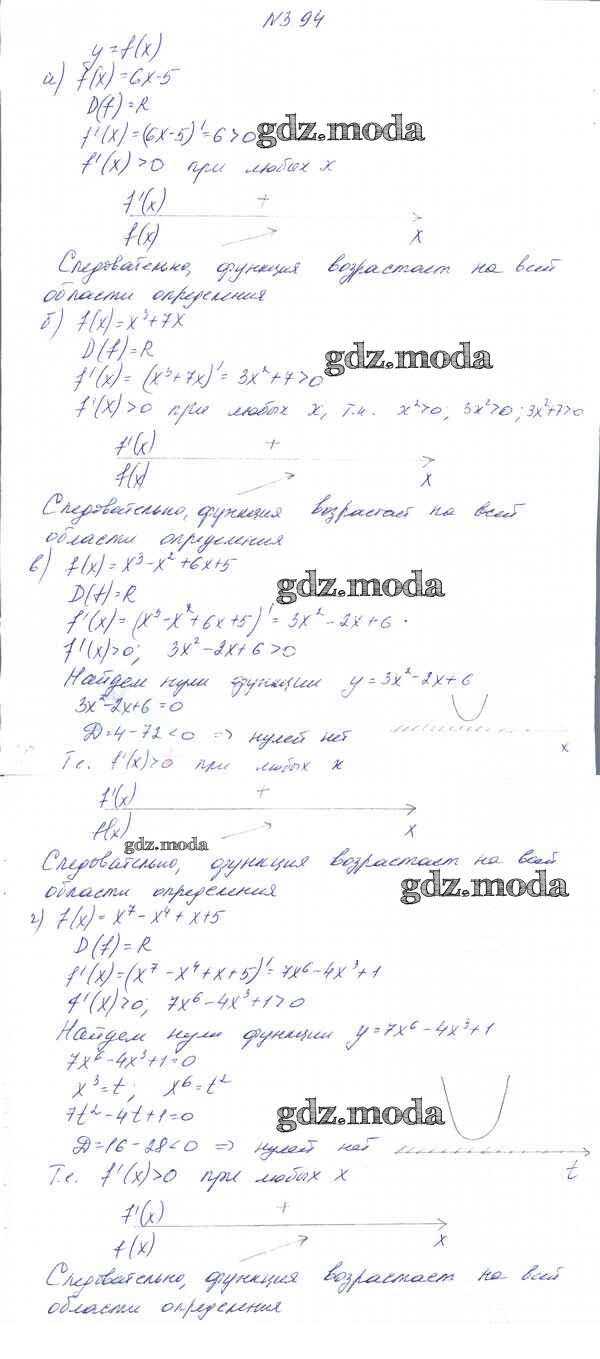 N394
y=f(x)
а) f(x)=6x-5
D(f)=R
f'(x)=(6x-5)'=6>0
gdz.moda
f'(x)>0 при любых x
f'(x) +
f(x) x
Следовательно, функция возрастает на всей
области определения
б) f(x)=x³+7x
D(f)=R
gdz.moda
f'(x)= (x³+7x)'= 3x²+7>0
f'(x)>0 при любых x, т.к. x²>0, 3x²>0; 3x²+7>0
f'(x) +
f(x) x
Следовательно, функция возрастает на всей
области определения
в) f(x)=x³-x²+6x+5
D(f)=R
gdz.moda
f'(x)=(x³-x²+6x+5)'=3x²-2x+6
f'(x)>0; 3x²-2x+6>0
Найдем нули функции y=3x²-2x+6
3x²-2x+6=0
D=4-72<0 => нулей нет
x
Т.е. f'(x)>0 при любых x
f'(x) +
f(x) x
gdz.moda
Следовательно, функция возрастает на всей
gdz.moda
области определения
г) f(x)=x⁷-x⁴+x+5
D(f)=R
f'(x)=(x⁷-x⁴+x+5)'=7x⁶-4x³+1
f'(x)>0; 7x⁶-4x³+1>0
Найдем нули функции y=7x⁶-4x³+1
7x⁶-4x³+1=0
x³=t; x⁶=t²
7t²-4t+1=0
gdz.moda
D=16-28<0 => нулей нет
t
Т.е. f'(x)>0 при любых x
f'(x) +
f(x) x
Следовательно, функция возрастает на всей
области определения